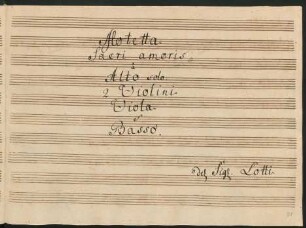 Motetta
Sacri amoris
à
Alto solo
2 Violini
Viola
e
Basso.
del Sigr Lotti